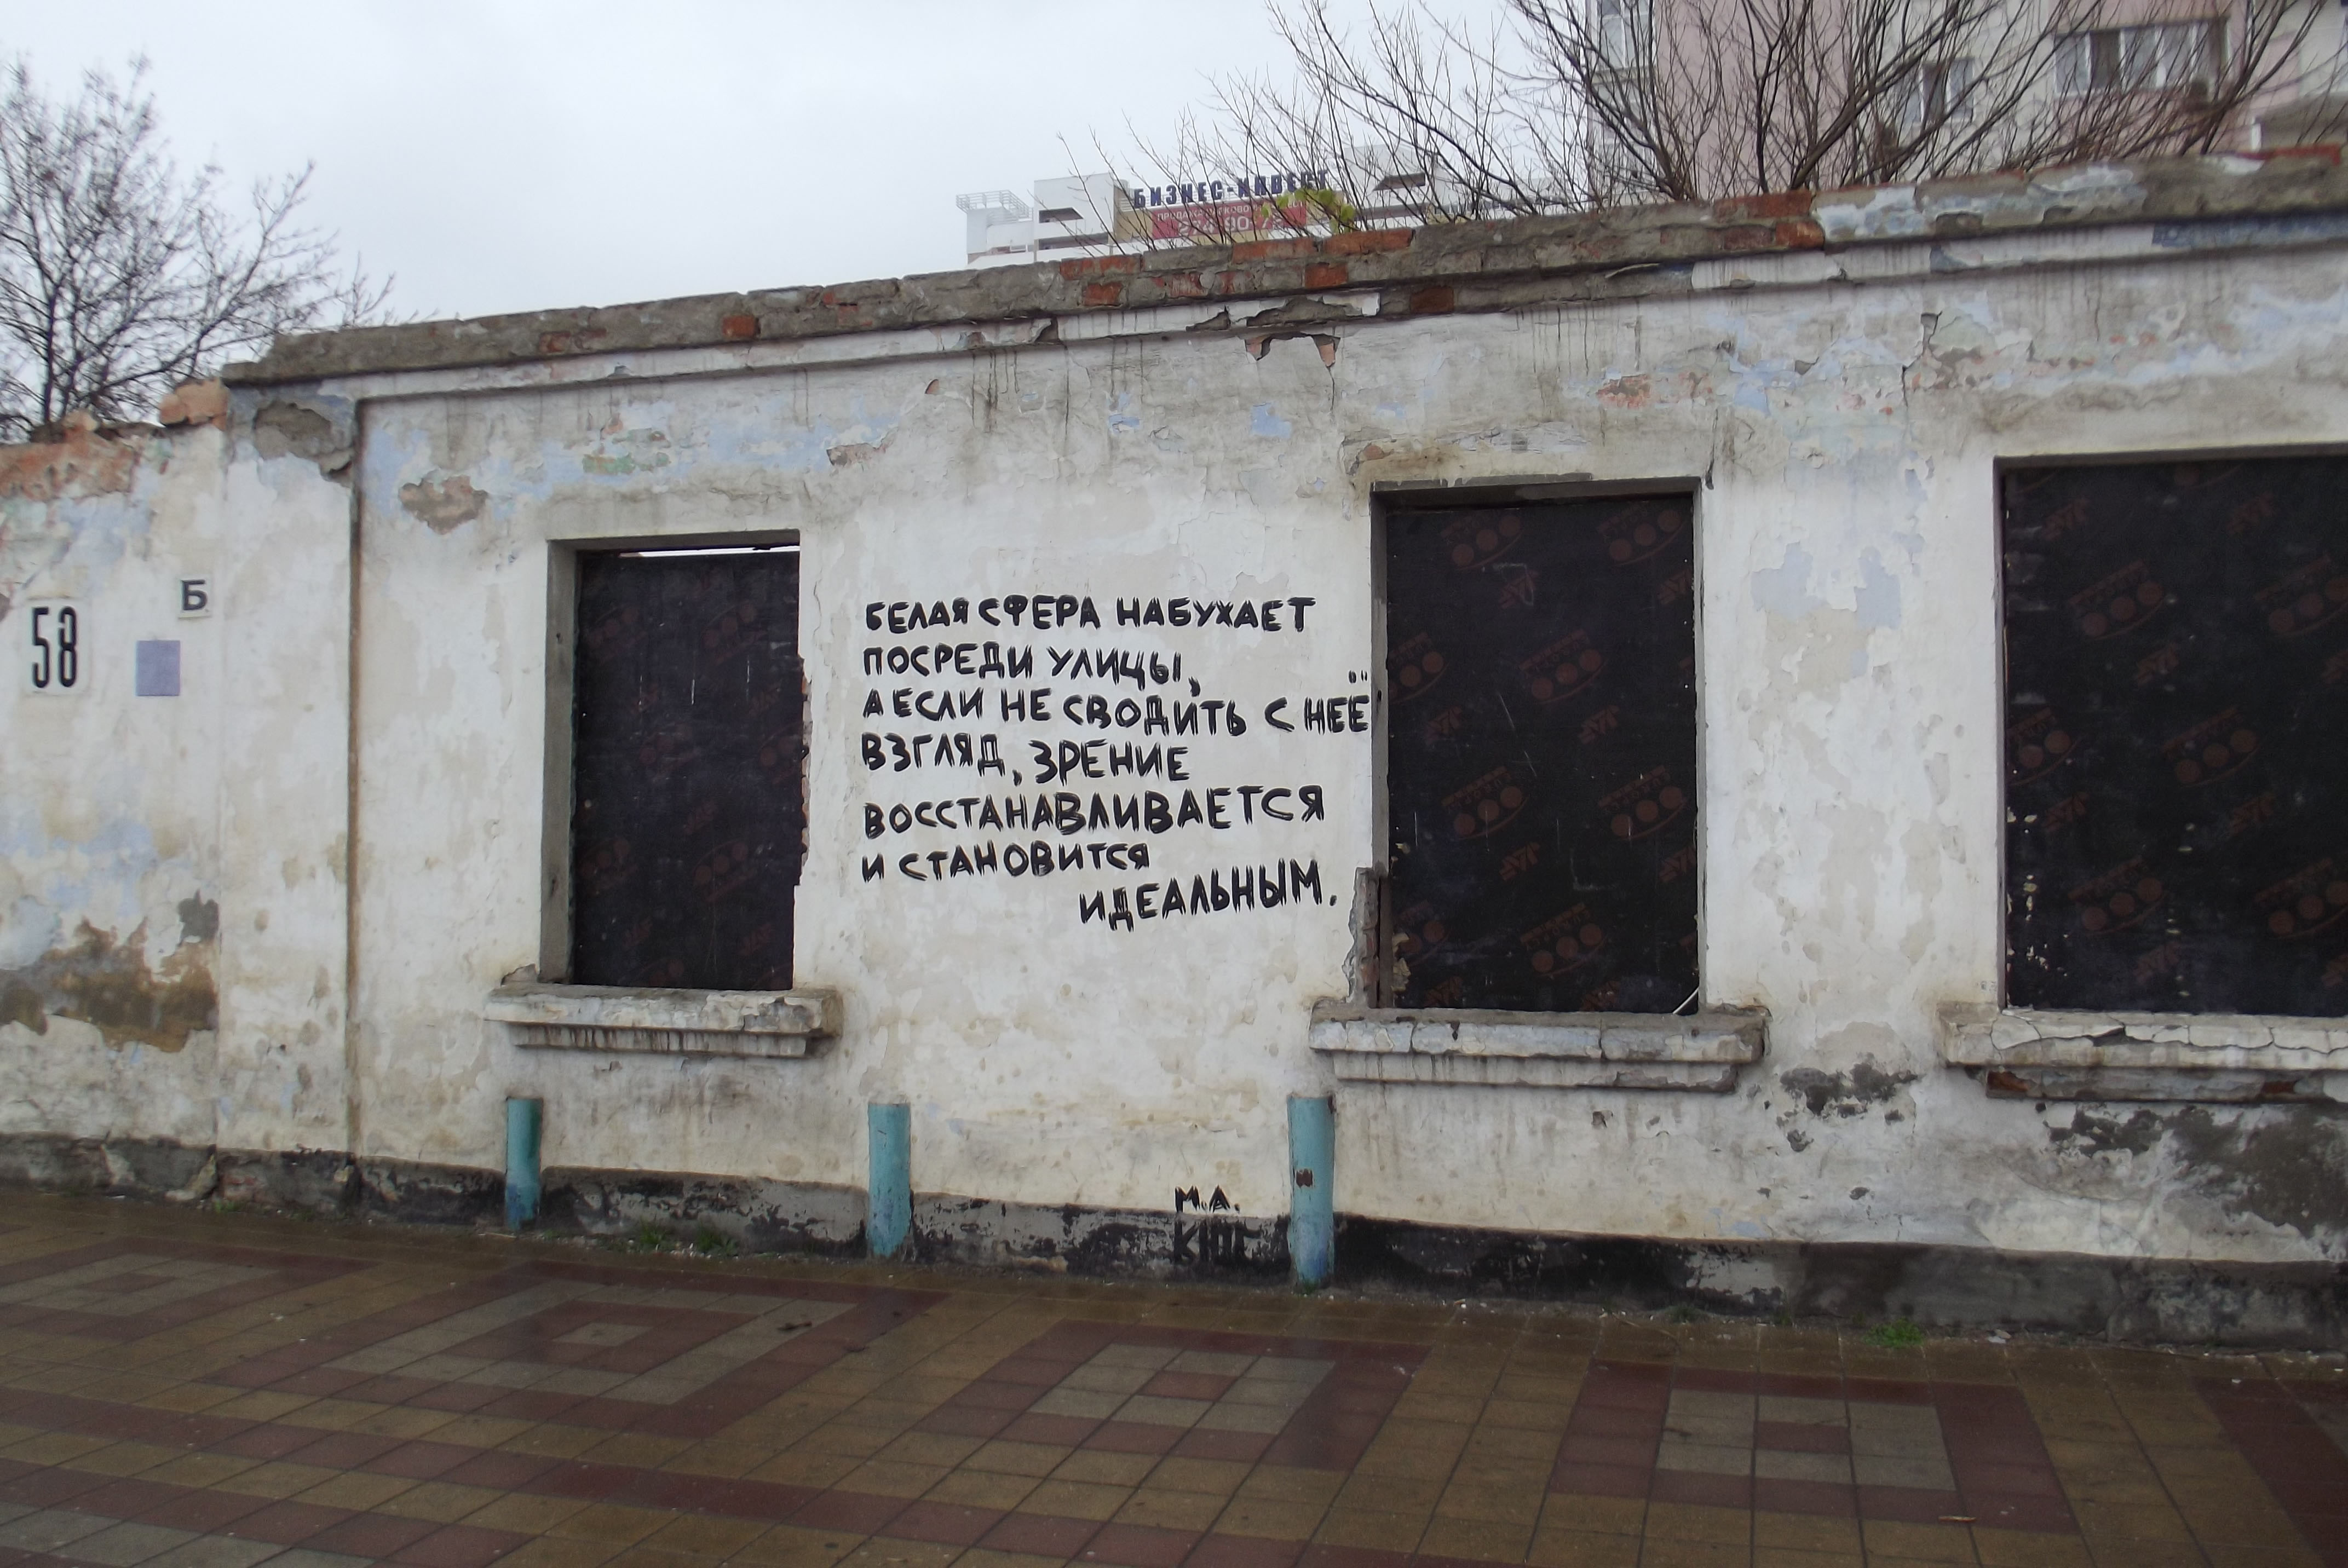 БИЗНЕС-ИНВЕСТ
Б
58
БЕЛАЯ СФЕРА НАБУХАЕТ
ПОСРЕДИ УЛИЦЫ,
А ЕСЛИ НЕ СВОДИТЬ С НЕЁ
ВЗГЛЯД, ЗРЕНИЕ
ВОССТАНАВЛИВАЕТСЯ
И СТАНОВИТСЯ
ИДЕАЛЬНЫМ.
М.А.